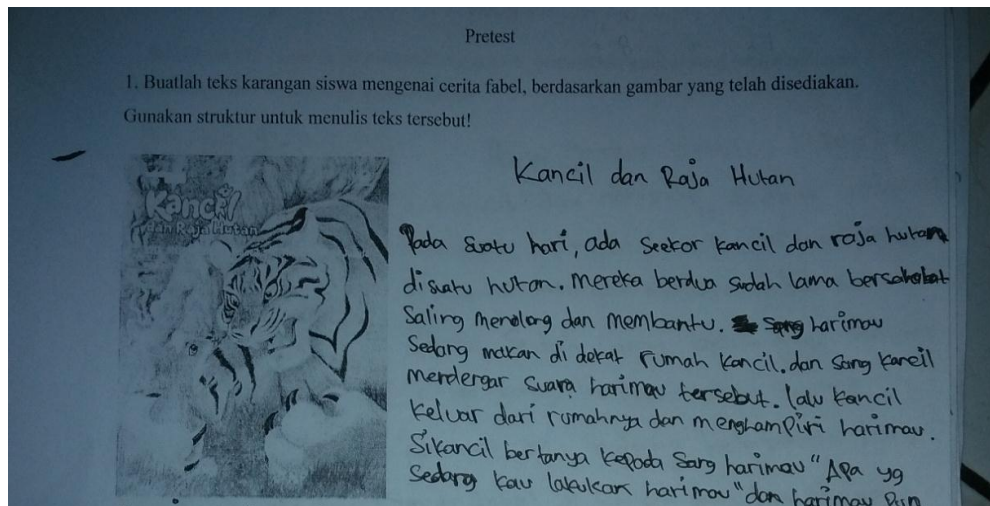 Pretest
1. Buatlah teks karangan siswa mengenai cerita fabel, berdasarkan gambar yang telah disediakan.
Gunakan struktur untuk menulis teks tersebut!
Kancil
dan Raja Hutan
Kancil dan Raja Hutan
Pada suatu hari, ada seekor kancil dan raja hutan
disuatu hutan. Mereka berdua sudah lama bersahabat
Saling menolong dan membantu. Sang harimau
Sedang makan di dekat rumah kancil. dan sang kancil
mendengar suara harimau tersebut. lalu kancil
keluar dari rumahnya dan menghampiri harimau.
Sikancil bertanya kepada sang harimau "Apa yg
Sedang kau lakukan harimau" dan harimau pun